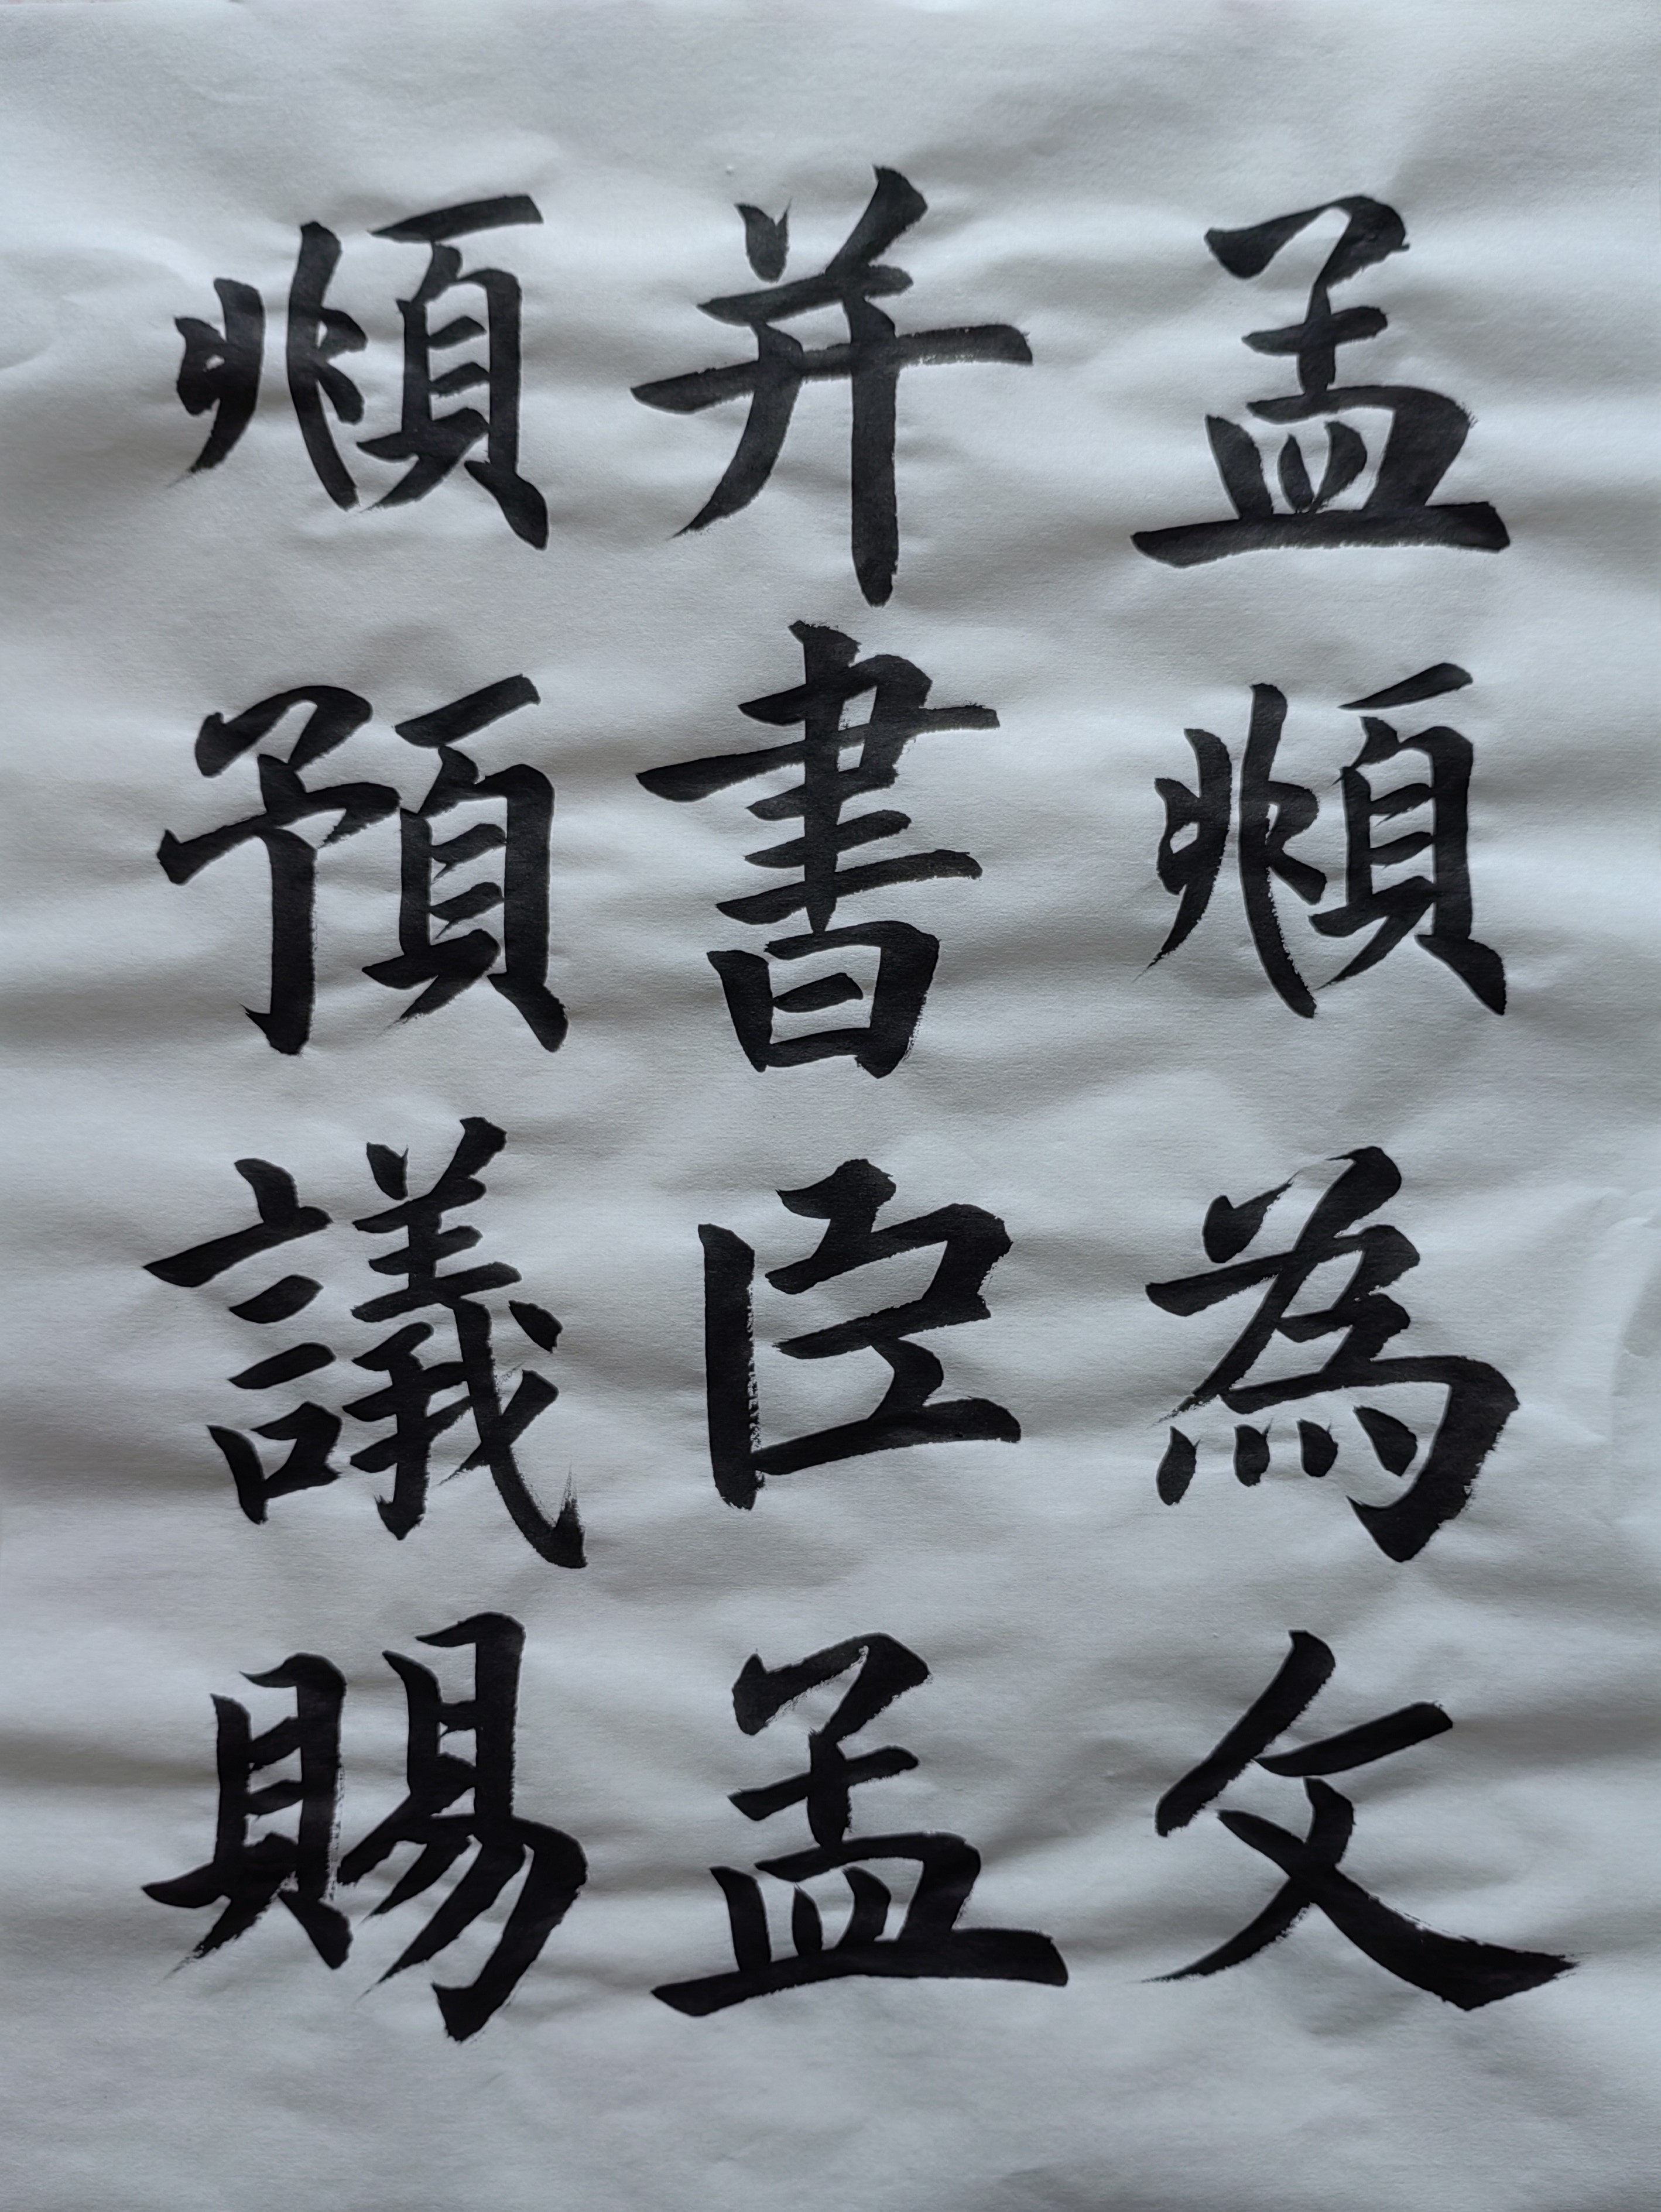 孟頫為文
并書臣孟
頫預議賜